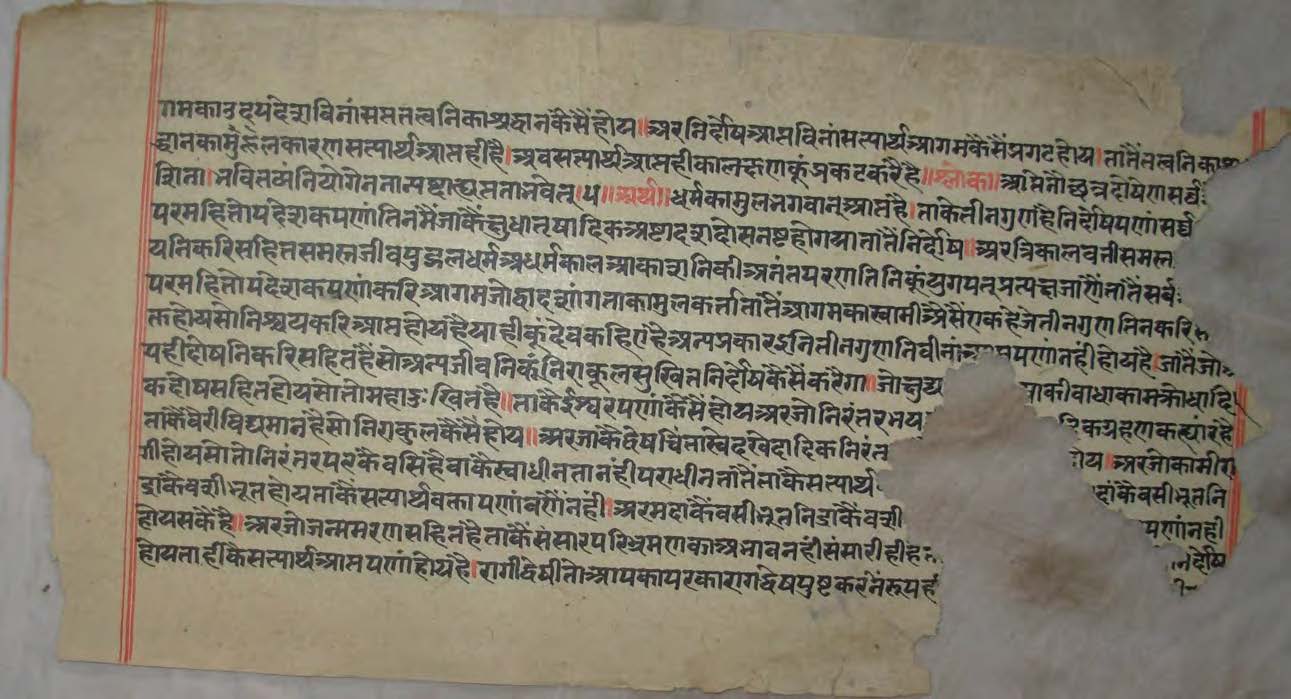 गमकाउदयदेशविनांसप्ततत्वनिकाश्रद्धानकैसैंहोय॥अरनिर्दोषआप्तविनांसत्यार्थआगमकैसैंप्रगटहोय।तातैंतत्वनिकाश्र
द्धानकामुललकारणसत्यार्थआप्तहीहै।अवसत्यार्थआप्तहीकालक्षणकूंप्रकटकरैहै॥श्लोक॥आप्तेनोच्छन्नदोषेणसर्वज्ञे
शिता।भवितव्यंनियोगेननान्यथाह्याप्ततानवेत्।५॥अर्थ॥धर्मकामुलभगवान्आप्तहै।ताकेतीनगुणहैनिर्दोषपणांसर्वज्ञ
परमहितोपदेशकपणांतिनमैंजाकैक्षुधातृषादिकअष्टादशदोसनष्टहोगयातातैंनिर्दोष॥अरत्रिकालवर्तीसमस्त
यनिकरिसहितसमस्तजीवपुद्गलधर्मअधर्मकालआकाशनिकीअनंतपरणतितिनिकूंयुगपत्प्रत्यक्षजाणैंतातैंसर्वज्ञ
परमहितोपदेशकपणांकरिआगमजोद्वादशांगताकामुलकर्त्तातातैंआगमकास्वामीअैसैंएकहेजेतीनगुणतिनकरिसं
क्तहोयसोनिश्चयकरिआप्तहोयहैयाहीकूंदेवकहिएहैअन्यप्रकारइनितीनगुणनिवीनांआप्तपणांनहींहोयहै।जातैंजोआ
यहीदोषनिकरिसहितहैसोअन्यजीवनिकूंनिराकूलसुखितनिर्दोषकैसैंकरैगा॥जोक्षुध षाकीवाधाकामक्रोधादि
कदोषसहितहोयसोतोमहादुःखितहै॥ताकैईश्वरपणांकैसैंहोयअरजोनिरंतरभय दिकग्रहणकत्यारहै
ताकैवैरीविद्यमानहैसोनिराकुलकैसैंहोय॥अरजाकैद्वेषचिंताखेदखेदादिकनिरंत होय॥अरजोकामीरा
गीहोयसोतोनिरंतरपरकैवसिहैवाकैस्वाधीनतानहींपराधीनतातैंताकैसत्यार्थ दाकैवसीभूतनि
द्राकैवशीभूतहोयताकैंसत्यार्थवक्तापणांवणैंनहीं॥अरमदाकैवसीभूतनिद्राकैवशी पणांनही
होयसकैहै॥अरजोजन्ममरणसहितहैताकैसंसारपरिभ्रमणकाअभावनहींसंसारीहीहैत निर्दोष
होयताहीकेसत्यार्थआप्तपणांहोयहै।रागीद्वेषीतोआपकापरकारागद्वेषपुष्टकरनेंरूपह